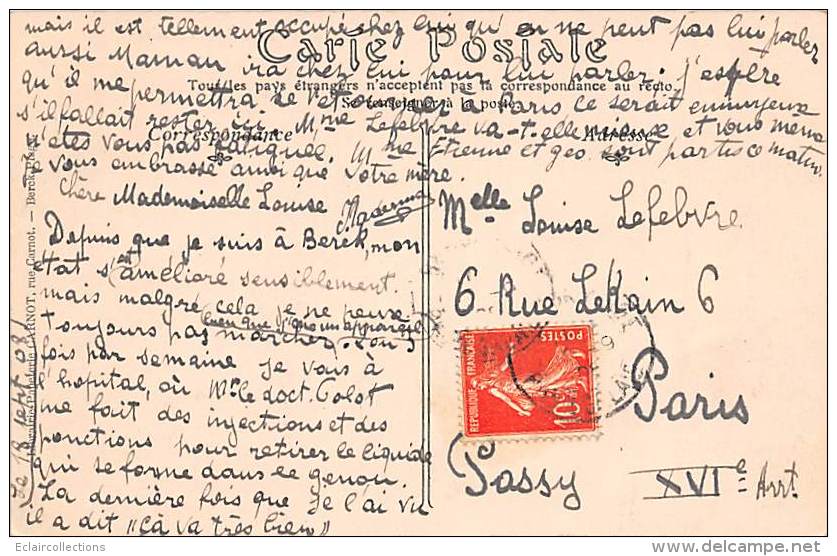 mais il est tellement occupé chez lui qu'on ne peut pas lui parler
Carte Postale
aussi Maman ira chez lui pour lui parler. j'espère
Tous les pays étrangers n'acceptent pas la correspondance au recto.
qu'il me permettra de retourner à Paris ce serait ennuyeux
Se renseigner à la poste
s'il fallait rester ici Mme Lefebvre va-t-elle mieux et vous même
Correspondance
Adresse
n'êtes vous pas fatiguée. Mme Etienne et geo sont partis ce matin.
vous embrasse ainsi que votre mère.
Chère Mademoiselle Louise
Depuis que je suis à Berck, mon
état s'est amélioré sensiblement.
mais malgré cela je ne peux
bien que j'ai un appareil
toujours pas marcher. 2 ou 3
fois par semaine je vais à
l'hopital, où Mr le doct. Calot
me fait des injections et des
ponctions pour retirer le liquide
qui se forme dans le genou.
La dernière fois que je l'ai vu
il a dit "çà va très bien"
Melle Louise Lefebvre
6 Rue LeKain 6
Paris
Passy
XVIe Arrt.
REPUBLIQUE FRANÇAISE
POSTES
10
Le 18 sept 08
Librairie-Papeterie CARNOT, rue Carnot. — Berck-Plage.
Eclaircollections
www.delcampe.net